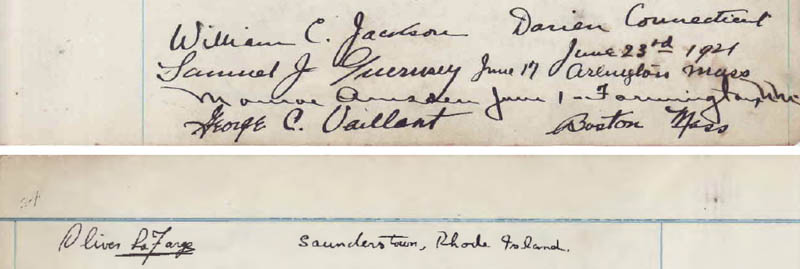 William C. Jackson Darien Connecticut
June 23rd 1921
Samuel J Guernsey June 17 Arlington Mass
Monroe Amsden June 1 - Farmington, NM
George C. Vaillant Boston Mass
Oliver LaFarge Saunderstown, Rhode Island.